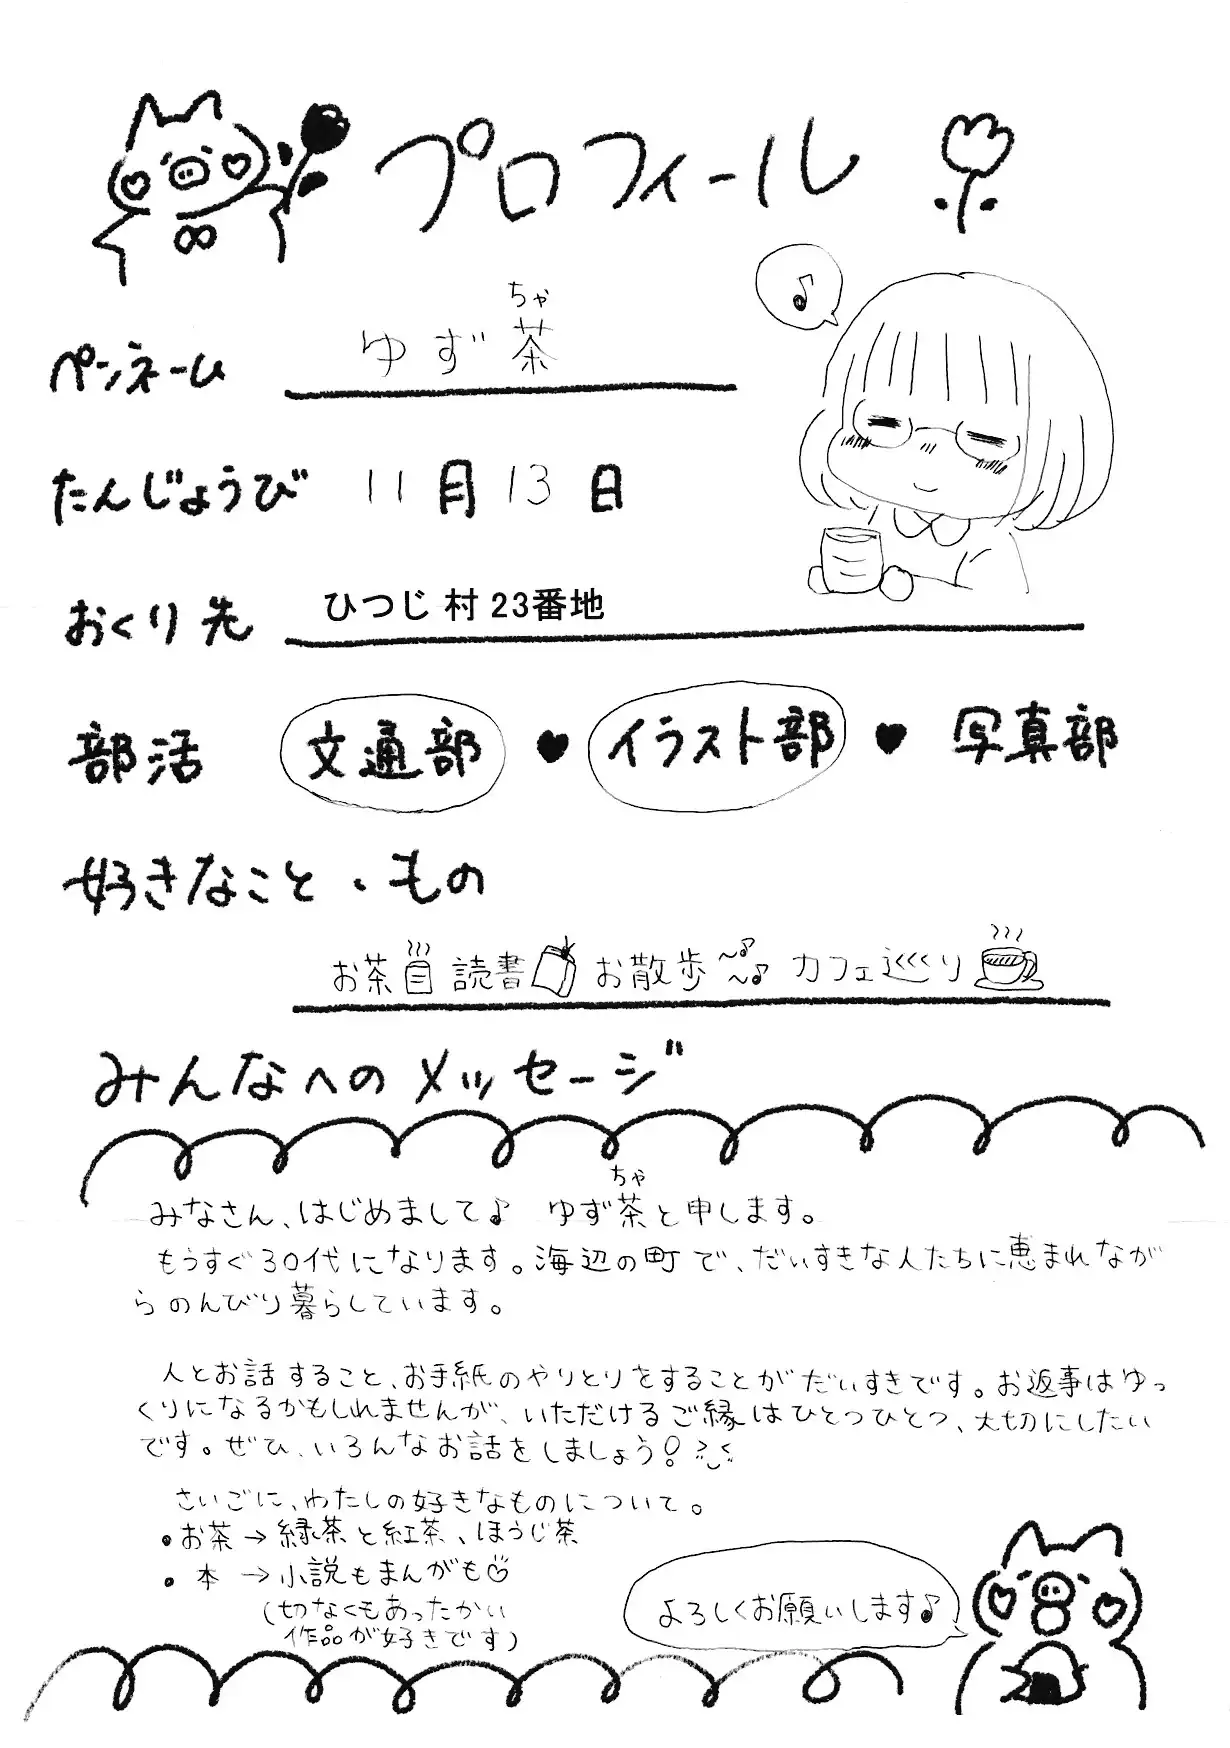 プロフィール
ちゃ
ペンネーム ゆず茶
たんじょうび 11月13日
おくり先 ひつじ村23番地
部活 文通部 ♥ イラスト部 ♥ 写真部
好きなこと・もの
お茶 読書 お散歩 カフェ巡り
みんなへのメッセージ
ちゃ
みなさん、はじめまして♪ ゆず茶と申します。
もうすぐ30代になります。海辺の町で、だいすきな人たちに恵まれなが
らのんびり暮らしています。
人とお話すること、お手紙のやりとりをすることがだいすきです。お返事はゆっ
くりになるかもしれませんが、いただけるご縁はひとつひとつ、大切にしたい
です。ぜひ、いろんなお話をしましょう!
さいごに、わたしの好きなものについて。
・お茶→緑茶と紅茶、ほうじ茶
・本→小説もまんがも
(切なくもあったかい
作品が好きです)
よろしくお願いします♪